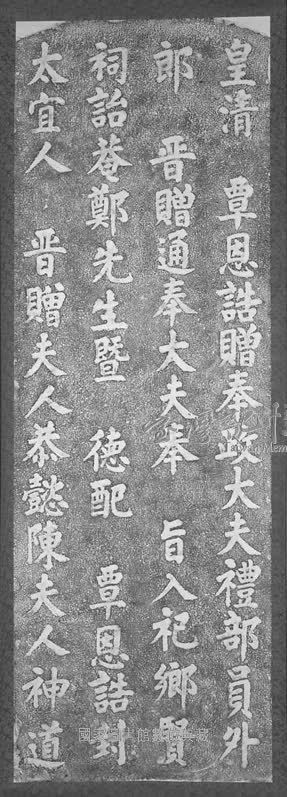 皇清 覃恩誥贈奉政大夫禮部員外
郎 晉贈通奉大夫奉 旨入祀鄉賢
祠詒菴鄭先生暨 德配 覃恩誥封
太宜人 晉贈夫人恭懿陳夫人神道